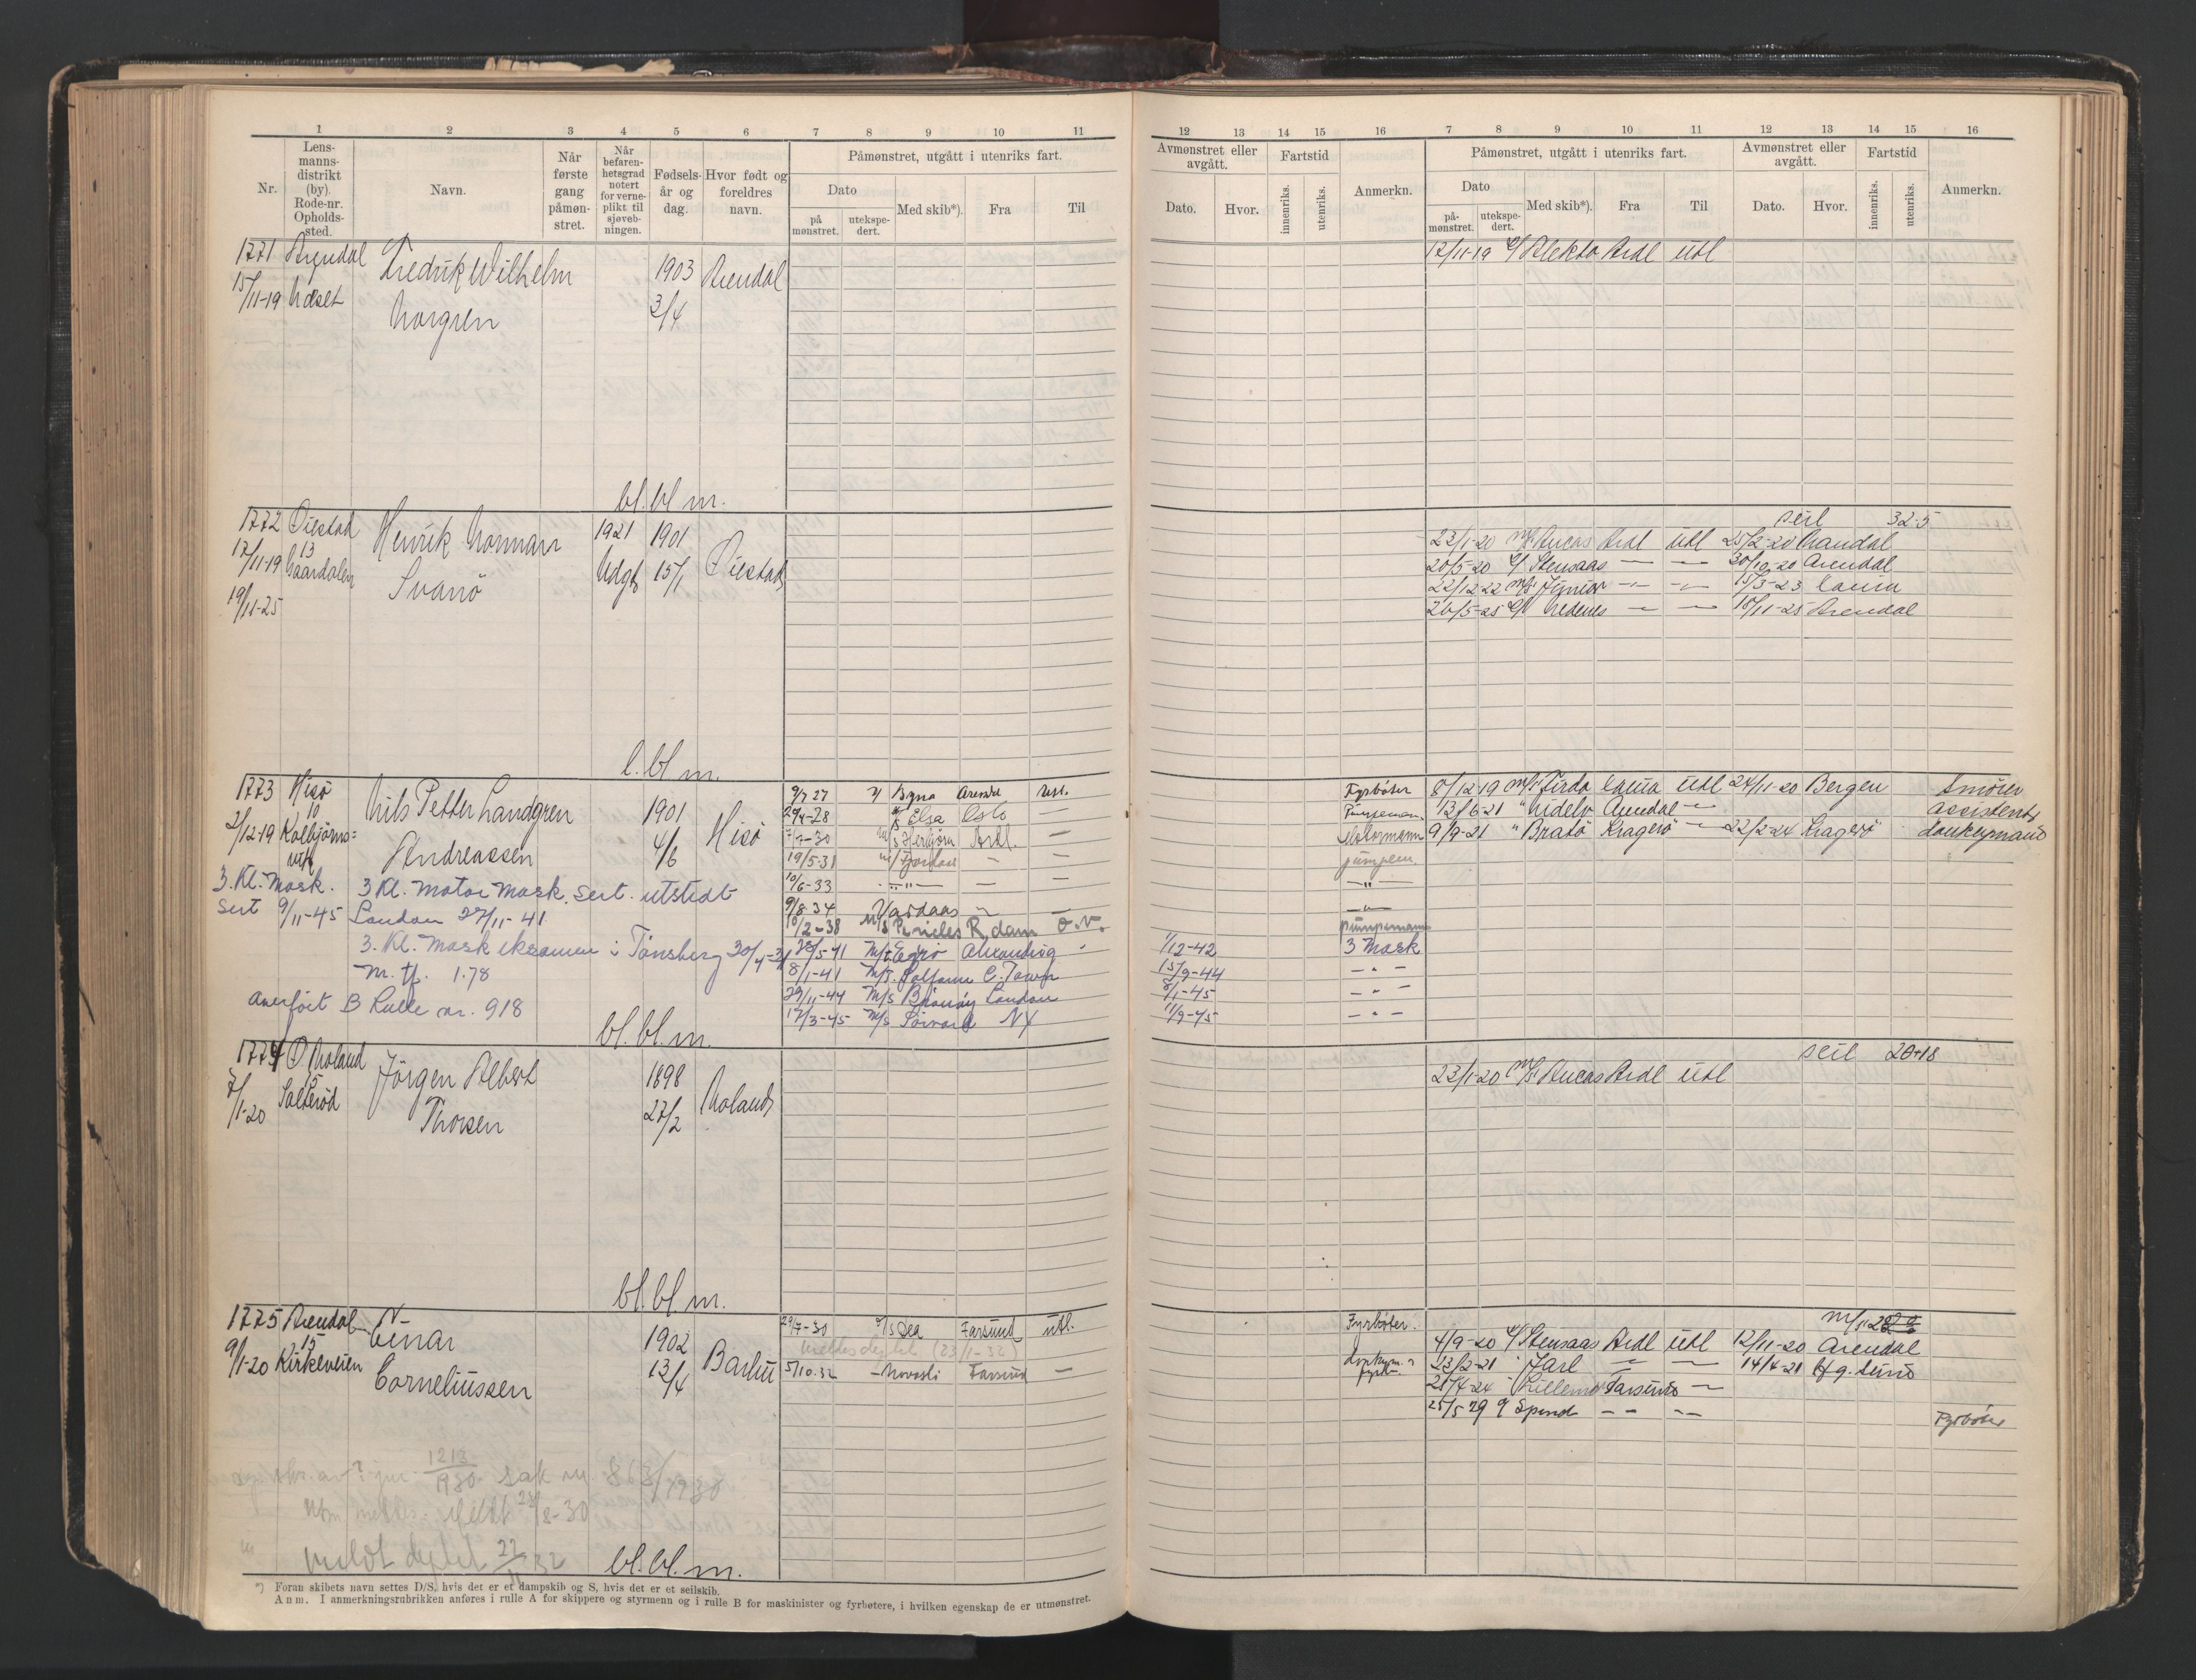 1 2 3 4 5 6 7 8 9 10 11
Nr. Lensmannsdistrikt (by). Rode-nr. Opholdssted. Navn. Når første gang påmønstret. Når befarenhetsgrad notert for verneplikt til sjøvebningen. Fødselsår og dag. Hvor født og foreldres navn. Påmønstret, utgått i utenriks fart.
Dato
på mønstret. utekspedert. Med skib*). Fra Til
1771 Arendal Fredrik Wilhelm 1903 Arendal
15/11-19 Norgren 3/4
bl. bl. m.
1772 Øiestad Henrik Norman 1921 1901 Øiestad
17/11-19 13 Svanø Udgt 15/1
19/11-25
l. bl. m.
1773 Hisø Nils Petter Landgren 1901 Hisø 9/7 27 Arendal
2/12-19 10 Kolbjørns= Andreassen 4/6 Elsa Oslo —
vik 7/7-30 Ardl. —
19/5-31 — —
3. Kl. Mask. 3 Kl. Motor Mask. Sert. utstedt 10/6-33 — " — — —
Sert 9/11-45 London 27/11-41 9/8 34 Vardaas — —
10/2-38 M/S Pericles R,dam O.V.
3. Kl. Mask eksamen i Tønsberg 30/4-31 28/5-41 Alexandria
m. tf. 1.78 8/1-41 M/T. C. Town
Overført B Rulle nr. 918 29/11-44 M/S London
bl. bl. m. 17/3-45 M/S NY
1774 Ø. Moland Jörgen Albert 1898 Moland
7/1-20 15 Salterød Thorsen 27/2
bl. bl. m.
1775 Arendal Einar 1902 Barbu 29/7-30 Farsund utl.
9/1-20 15 Kirkeveien Corneliussen 13/4 (23/1-32)
5/10.32 Farsund —
1213/1930 sak nr. 863/1930
23/8-30
meldt
bl. bl. m.
*) Foran skibets navn settes D/S, hvis det er et dampskib og S, hvis det er et seilskib.
Anm. I anmerkningsrubrikken anføres i rulle A for skippere og styrmenn og i rulle B for maskinister og fyrbøtere, i hvilken egenskap de er utmønstret.
12 13 14 15 16 7 8 9 10 11 12 13 14 15 16
Avmønstret eller avgått. Fartstid Anmerkn. Påmønstret, utgått i utenriks fart. Avmønstret eller avgått. Fartstid Anmerkn.
Dato. Hvor. innenriks. utenriks. Dato
på-mønstret. utekspedert. Med skib*). Fra Til Dato. Hvor. innenriks. utenriks.
12/11-19 Alekto Ardl Utl
seil 32-5
23/1-20 Aucas Ardl Utl 25/2-20 Mandal
20/5-20 Stensaas — — 30/10-20 Arendal
22/12-22 Junior — — 15/3-23
26/5-25 Nedenes — — 18/11-25 Arendal
Fyrbøter 8/12-19 Firda Utl 24/11-20 Bergen Smører
Pumpeman. 13/6-21 " Nidelv Arendal — assistent
Motormann 9/9-21 " Bratø Kragerø — 22/2-24 Kragerø donkeymand
pumpem.
— " —
— " —
pumpemann
1/12-42 3 Mask
15/9-44 — " —
8/1-45 — " —
11/9-45 — " —
seil 20+18
23/1-20 Aucas Ardl Utl
Fyrbøter.
4/9-20 Stensaas Ardl Utl 12/11-20 Arendal
23/2-21 Jarl — — 14/4-21
Farsund —
25/5 29 Spind — — Fyrbøter